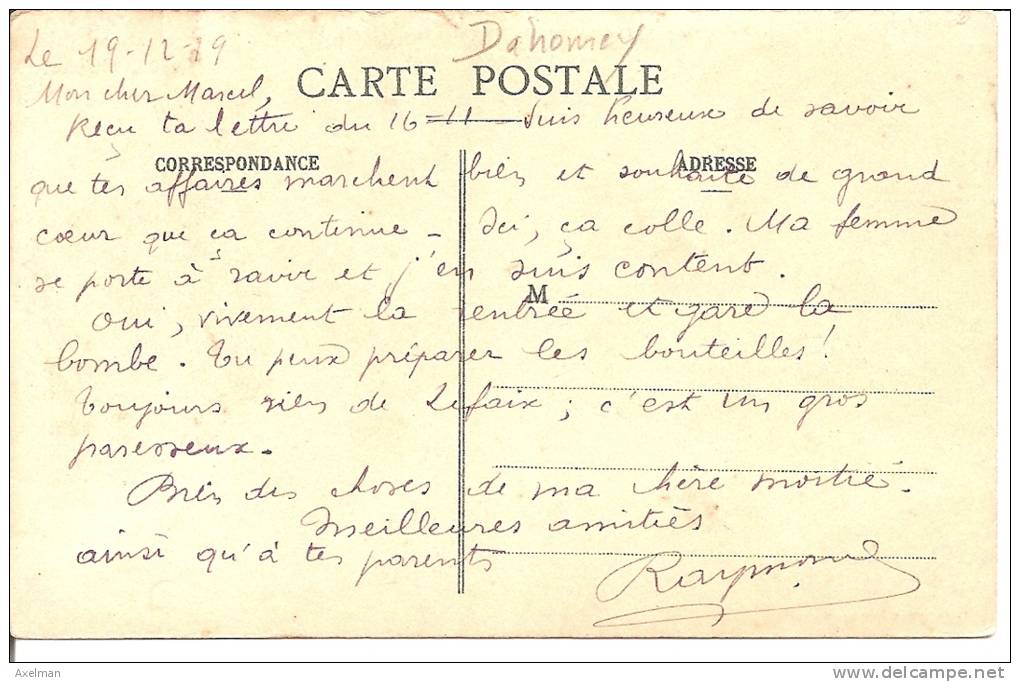 Dahomey
Le 19-12-29
CARTE POSTALE
Mon cher Marcel,
Reçu ta lettre du 16-11 suis heureux de savoir
CORRESPONDANCE
ADRESSE
que tes affaires marchent bien et souhaite de grand
cœur que ça continue - Ici, ça colle. Ma femme
se porte à ravir et j'en suis content.
M
Oui, vivement la rentrée et gare la
bombe. Tu peux préparer les bouteilles!
Toujours rien de Lefaix; c'est un gros
paresseux.
Bien des choses de ma chère moitié.
Meilleures amitiés
ainsi qu'à tes parents
Raymond
Axelman
www.delcampe.net